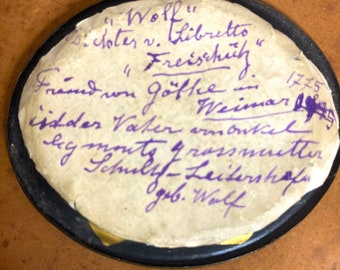 „Wolf"
Dichter v. Libretto
„Freischütz"
Freund von Göthe in 1775
Weimar
ist der Vater von onkel
Egmonts grossmutter
Schulz-Leitershofen
geb. Wolf